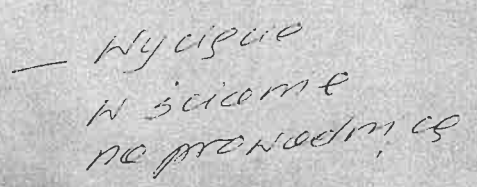 — Wycięcie
w ścianie
na prowadnicę